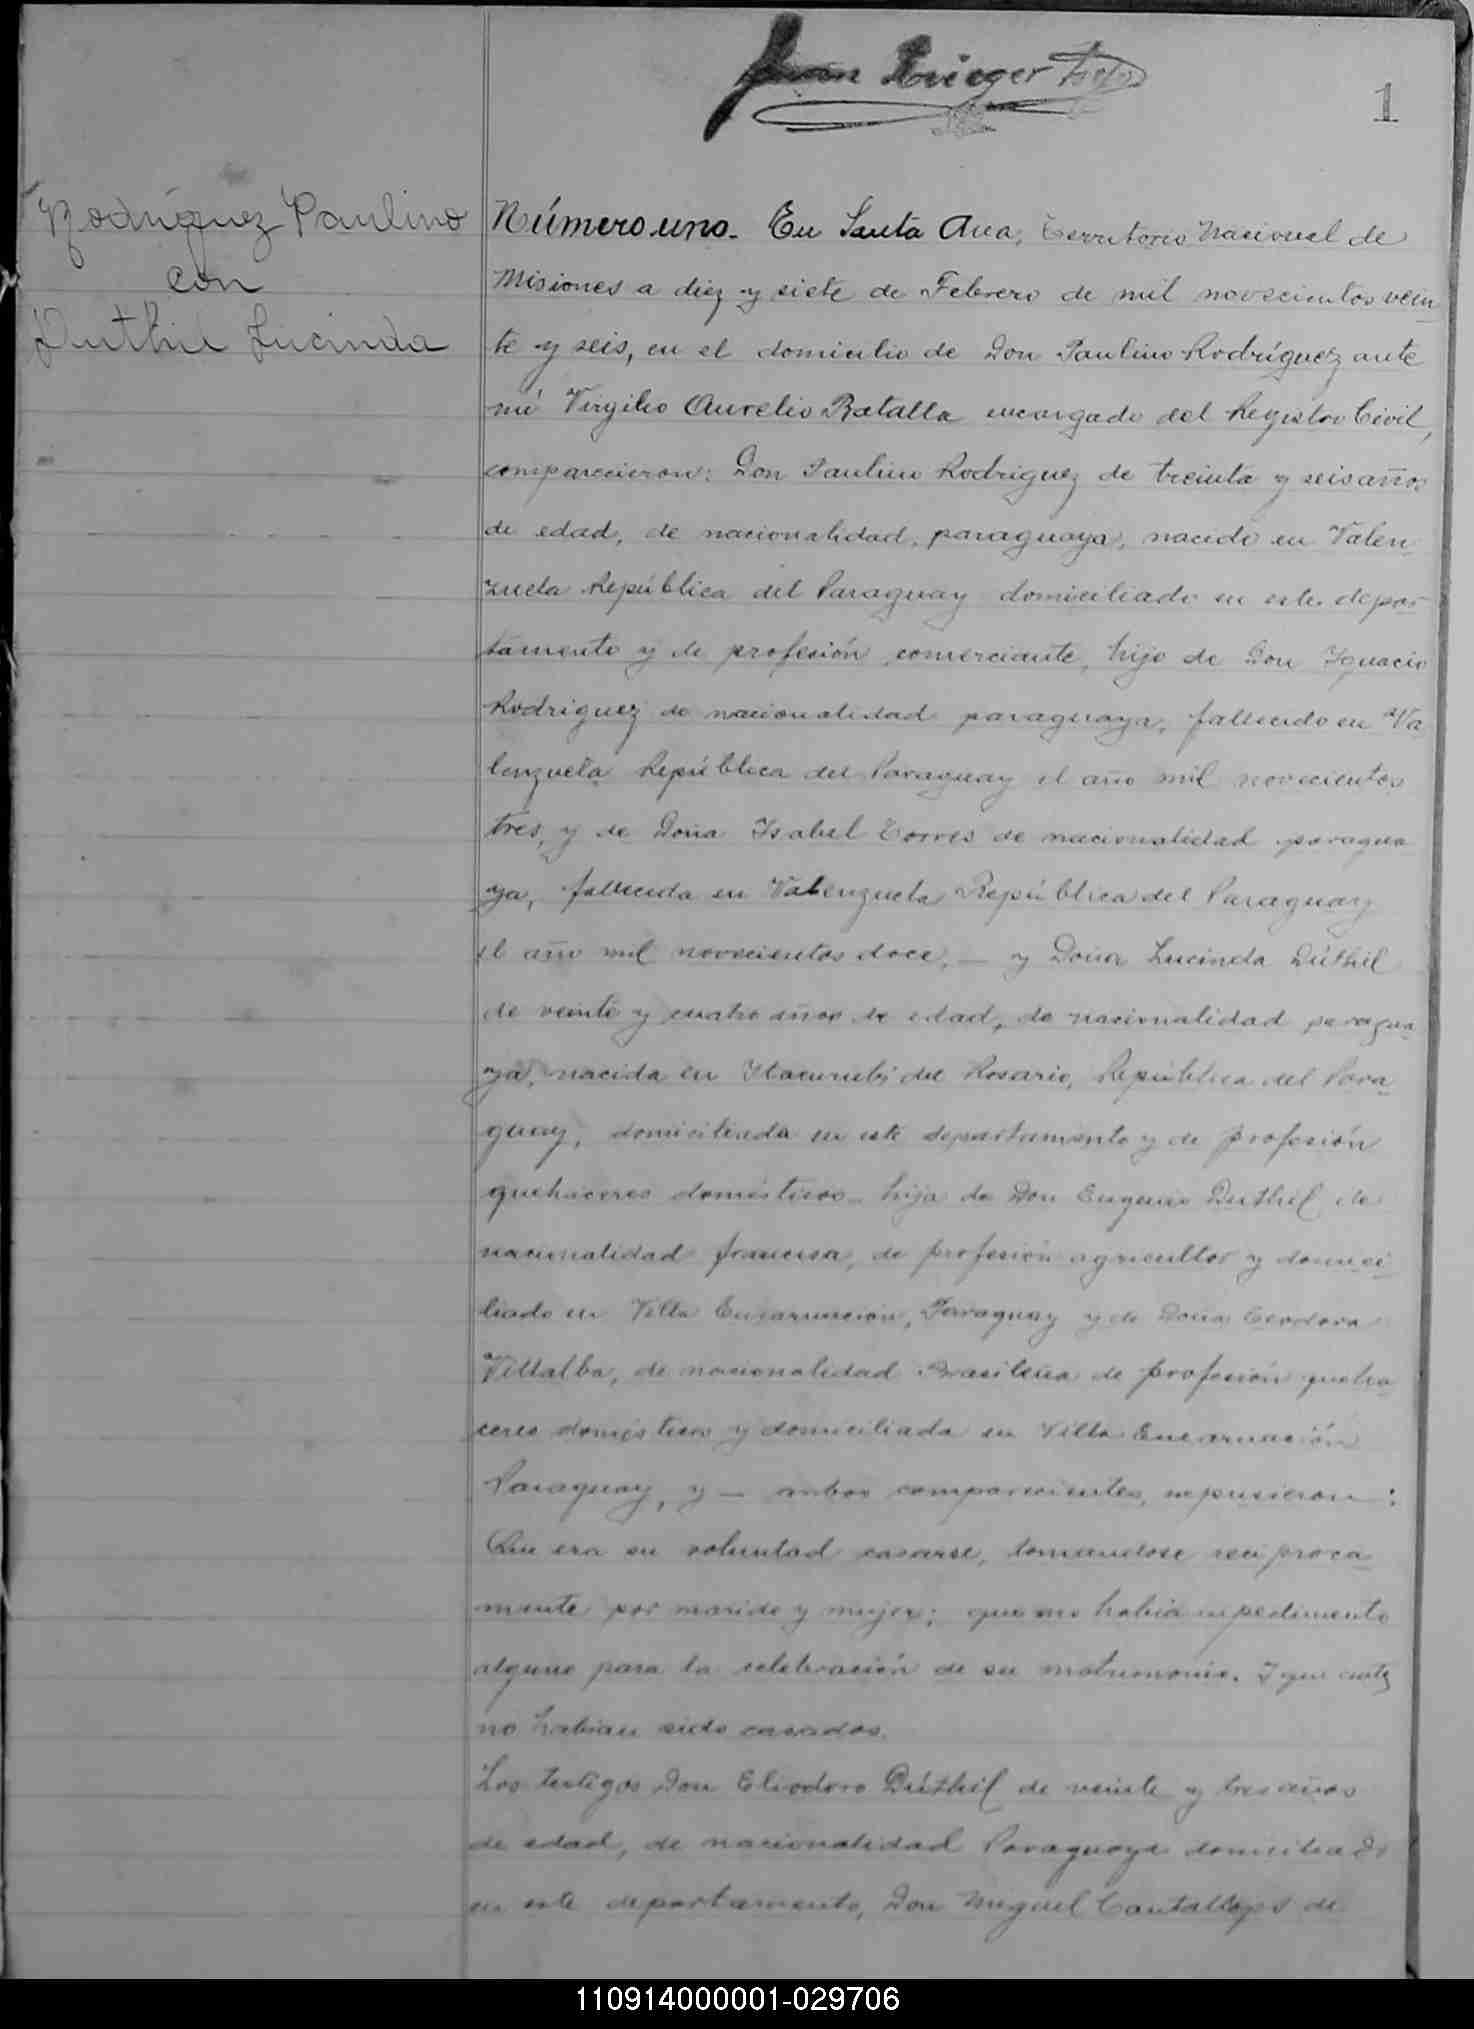 Juan Krieger
1
Rodríguez Paulino
con
Duthil Lucinda
Número uno. En Santa Ana, Territorio Nacional de
Misiones a diez y siete de Febrero de mil novecientos vein
te y seis, en el domicilio de Don Paulino Rodríguez ante
mí Virgilio Aurelio Batalla encargado del Registro Civil,
comparecieron: Don Paulino Rodriguez de treinta y seis años
de edad, de nacionalidad paraguaya, nacido en Valen
zuela República del Paraguay domiciliado en este depar
tamento y de profesión comerciante, hijo de Don Ignacio
Rodriguez de nacionalidad paraguaya, fallecido en Va
lenzuela República del Paraguay el año mil novecientos
tres, y de Doña Isabel Torres de nacionalidad paragua
ya, fallecida en Valenzuela República del Paraguay
el año mil novecientos doce, — y Doña Lucinda Dúthil
de veinte y cuatro años de edad, de nacionalidad paragua
ya, nacida en Itacurubí del Rosario, República del Para
guay, domiciliada en este departamento y de profesión
quehaceres domésticos hija de Don Eugenio Duthil de
nacionalidad francesa, de profesión agricultor y domici
liado en Villa Encarnación, Paraguay y de Doña Teodora
Villalba, de nacionalidad Brasileña de profesión queha
ceres domésticos y domiciliada en Villa Encarnación
Paraguay, y — ambos comparecientes, expusieron:
Que era su voluntad casarse, tomandose reciproca
mente por marido y mujer; que no había impedimento
alguno para la celebración de su matrimonio. Y que antes
no habian sido casados.
Los testigos Don Eliodoro Dúthil de veinte y tres años
de edad, de nacionalidad Paraguaya domiciliado
en este departamento, Don Miguel Cantallops de
110914000001-029706